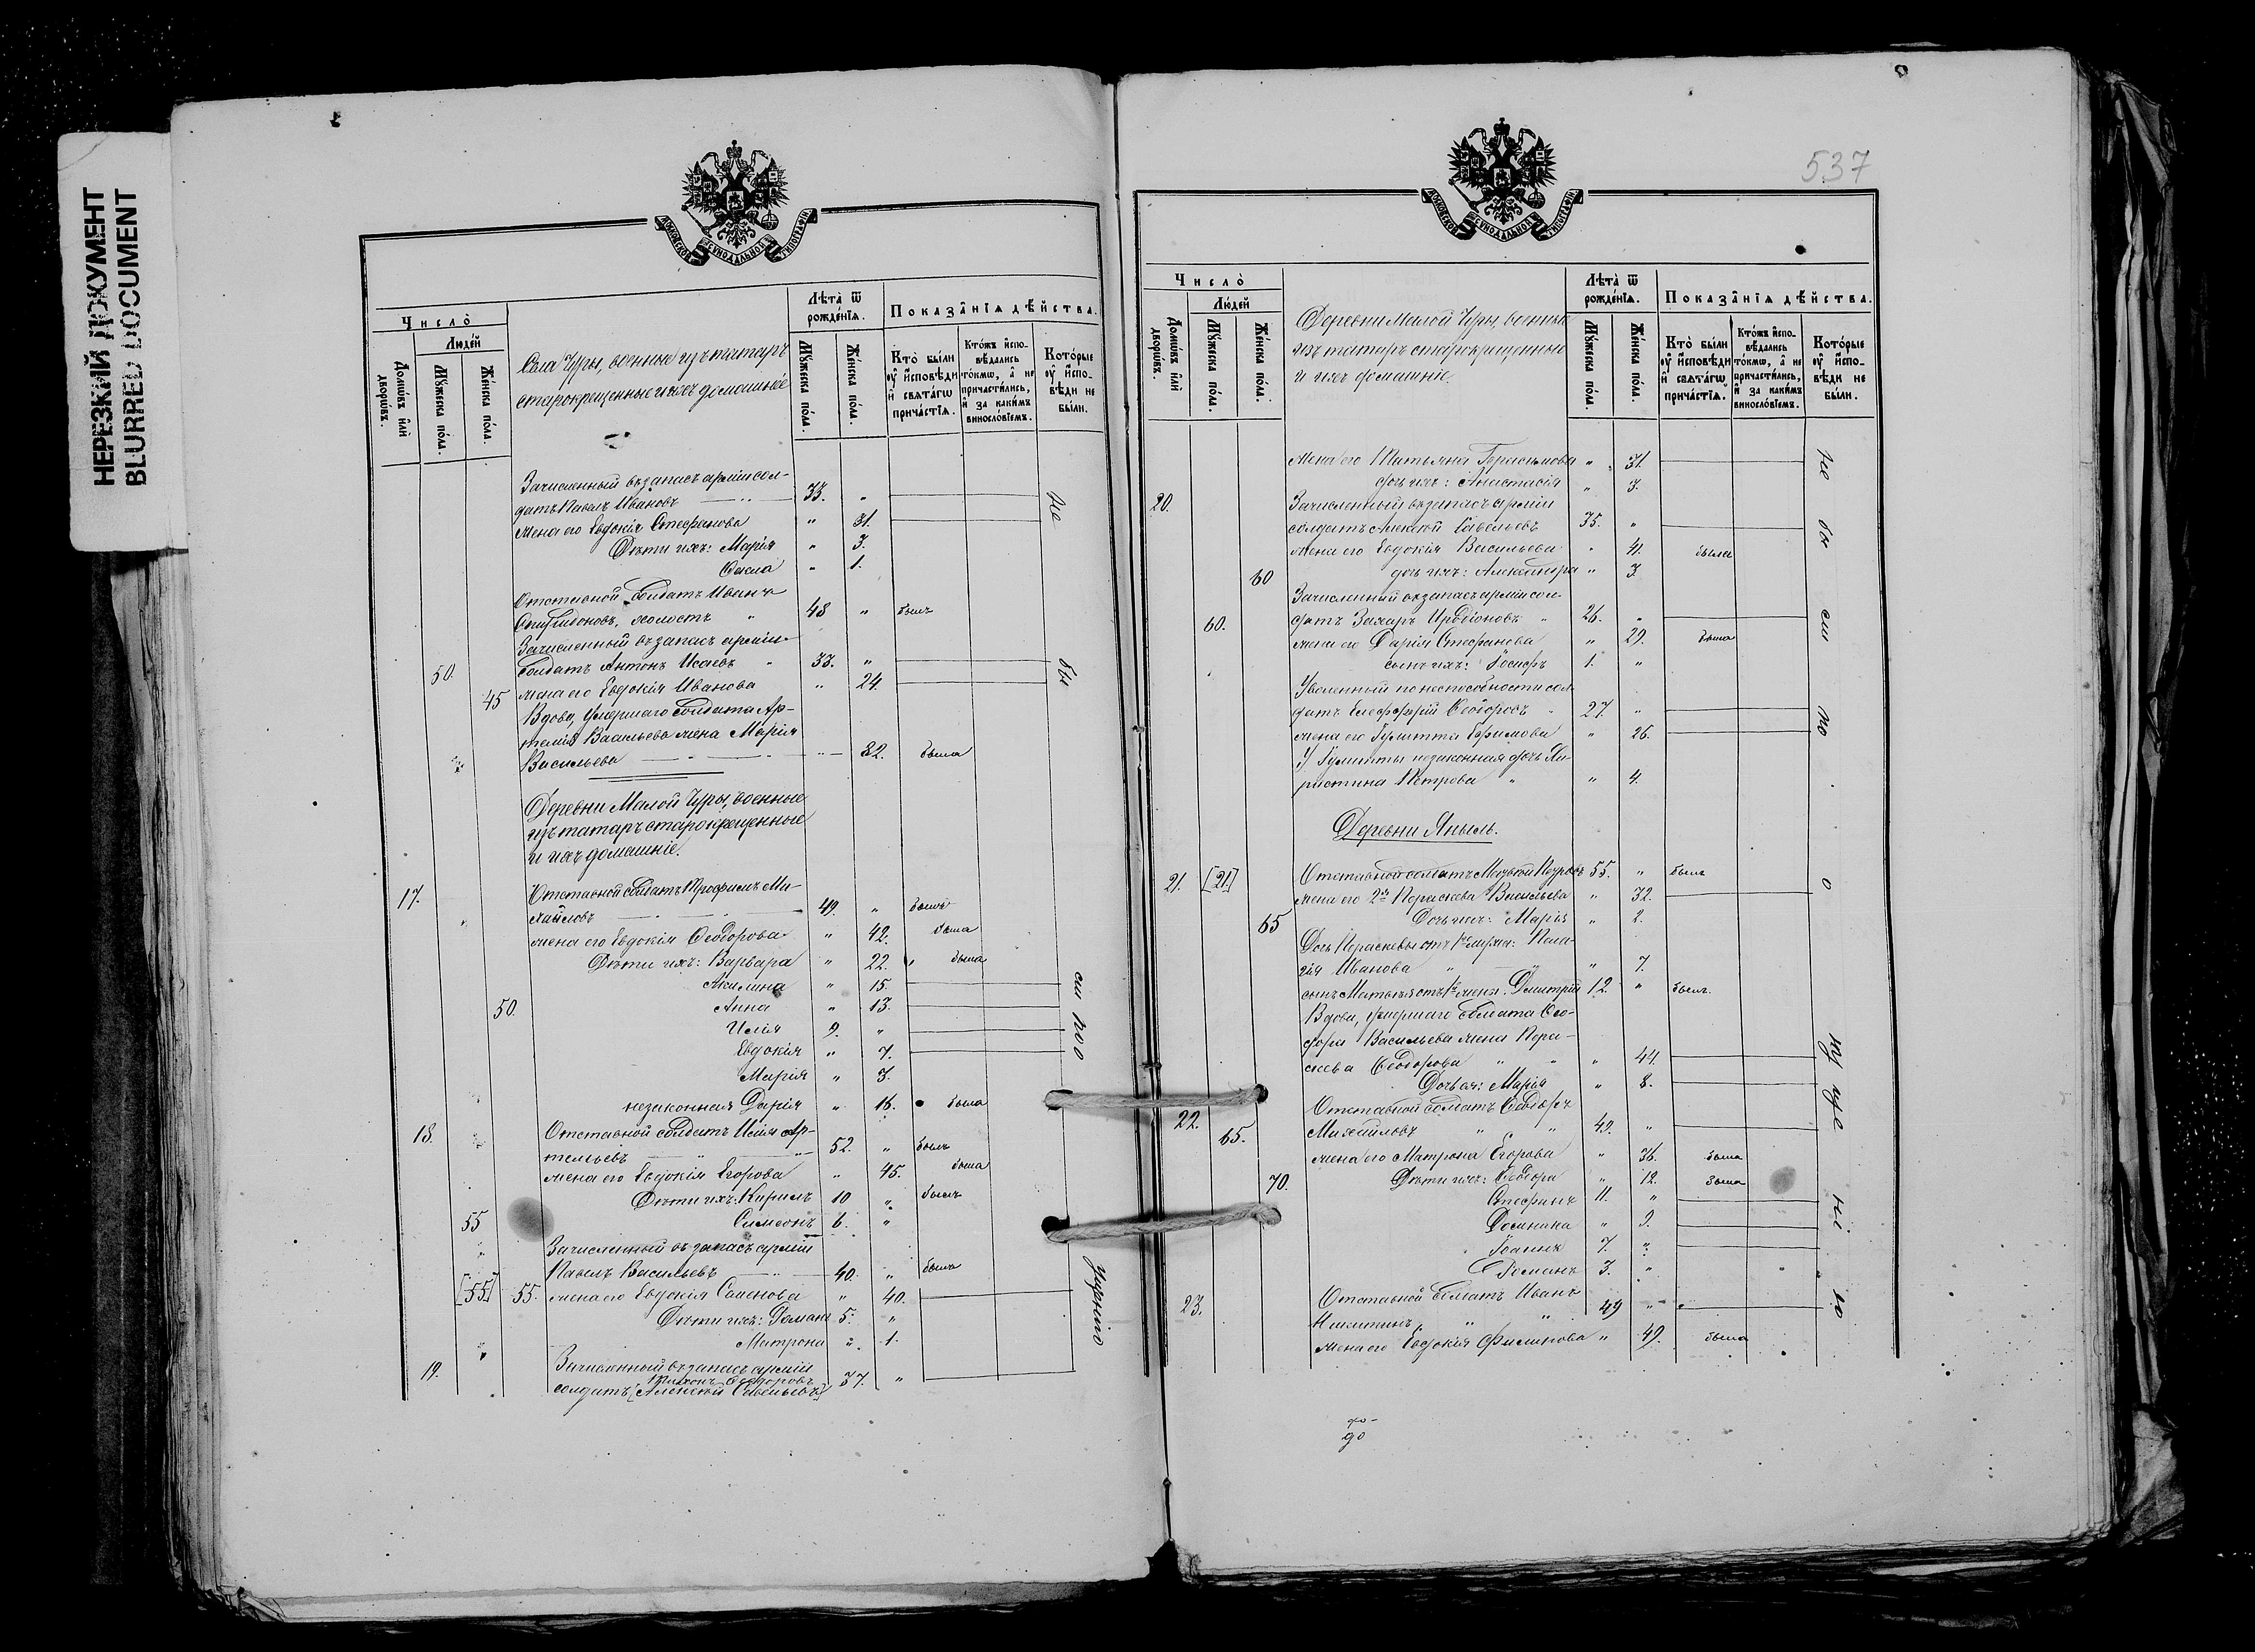 НЕРЕЗКИЙ ДОКУМЕНТ
BLURRED DOCUMENT
МОСКОВСКОЙ СѴНОДАЛЬНОЙ ТИПОГРАФІИ
Число̀
Людей
Домѡвъ или дворѡвъ.
Мꙋжеска пола.
Женска пола.
Села Чуры, военные изъ татаръ
старокрещенные и ихъ домашніе
Лѣта̀ ѿ рожденїѧ.
Мꙋжеска пола.
Женска пола.
Показанїѧ дѣйства.
Кто̀ были оу исповѣди и свѧтагѡ причастїѧ.
Ктожъ исповѣдались токмѡ, а не причастились, и за какимъ винословїемъ.
Которые оу исповѣди не были.
Зачисленный въ запасъ арміи сол-
датъ Павелъ Ивановъ 33. "
жена его Евдокія Стефанова " 31.
Дѣти ихъ: Марія " 3.
Ѳекла " 1.
Отставной Солдатъ Иванъ
Спиридоновъ, холостъ " 48 " былъ
Зачисленный въ запасъ арміи
50. Солдатъ Антонъ Исаевъ " 33. "
45 жена его Евдокія Иванова " 24.
Вдова, умершаго Солдата Ар-
темія Васильева жена Марія
Васильева " 32. была
Деревни Малой Чуры, военные
изъ татаръ старокрещенные
и ихъ домашніе.
17. Отставной Солдатъ Трофимъ Ми-
хайловъ 49. " былъ
жена его Евдокія Ѳеодорова " 42. была
Дѣти ихъ: Варвара " 22. была
Акилина " 15.
50. Анна " 13.
Илія 9. "
Евдокія " 7.
Марія " 3.
незаконная Дарія " 16. была
18. Отставной Солдатъ Илія Ар-
темьевъ 52. " былъ
жена его Евдокія Егорова " 45. была
Дѣти ихъ: Кирилъ 10 " былъ
55 Симеонъ 6. "
Зачисленный въ запасъ арміи
Павелъ Васильевъ 40. " былъ
[55] 55. жена его Евдокія Семенова " 40.
Дѣти ихъ: Романъ 5. "
Матрона " 1.
19. Зачисленный въ запасъ арміи
Ѳеодоровъ
солдатъ [Алексѣй Савельевъ] 37. "
537
МОСКОВСКОЙ СѴНОДАЛЬНОЙ ТИПОГРАФІИ
Число̀
Людей
Домѡвъ или дворѡвъ.
Мꙋжеска пола.
Женска пола.
Деревни Малой Чуры, военные
изъ татаръ старокрещенные
и ихъ домашніе.
Лѣта̀ ѿ рожденїѧ.
Мꙋжеска пола.
Женска пола.
Показанїѧ дѣйства.
Кто̀ были оу исповѣди и свѧтагѡ причастїѧ.
Ктожъ исповѣдались токмѡ, а не причастились, и за какимъ винословїемъ.
Которые оу исповѣди не были.
жена его Татьяна Герасимова " 31.
дочь ихъ: Анастасія " 3.
20. Зачисленный въ запасъ арміи
солдатъ Алексѣй Савельевъ 35. "
жена его Евдокія Васильева " 41. была
60 дочь ихъ: Александра " 3
Зачисленный въ запасъ арміи сол-
60. датъ Захаръ Иродіоновъ " 26. "
жена его Дарія Стефанова " 29. была
сынъ ихъ: Іосифъ 1. "
Уволенный по неспособности сол-
датъ Елевферій Ѳеодоровъ 27. "
жена его Іулитта Ефимова " 26.
У Іулитты незаконная дочь Хри-
ристина Петрова " " 4.
Деревни Яныль.
21. [21] Отставной солдатъ Матвѣй Петровъ 55. " былъ
жена его 2я Пераскева Васильева " 32.
65 Дочь ихъ: Марія " 2.
Дочь Пераскевы отъ 1го мужа: Пела-
гія Иванова " " 7.
сынъ Матвѣя отъ 1й жены: Димитрій 12. " былъ.
Вдова, умершаго Солдата Ѳео-
дора Васильева жена Пера-
скева Ѳеодорова " " 44.
Дочь ея: Марія " 8.
22. Отставной солдатъ Ѳеодоръ
65. Михайловъ " " 42. "
жена его Матрона Егорова " 36. была
70. Дѣти ихъ: Ѳеодора " 12. была
Стефанъ 11. "
Домника " 9.
Іоаннъ 7. "
Романъ 3. "
23. Отставной Солдатъ Иванъ
Никитинъ " " 49 "
жена его Евдокія Филипова " 49. была
до